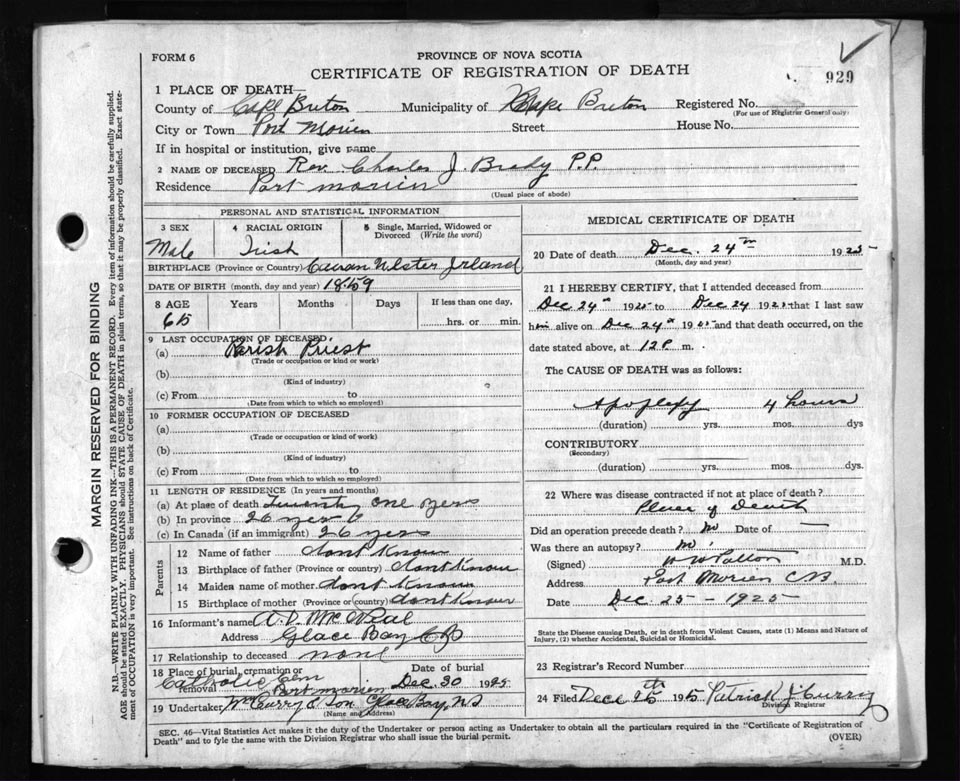 FORM 6
PROVINCE OF NOVA SCOTIA
CERTIFICATE OF REGISTRATION OF DEATH
929
1 PLACE OF DEATH
County of Cape Breton Municipality of Cape Breton Registered No.
(For use of Registrar General only)
City or Town Port Morien Street House No.
If in hospital or institution, give name
2 NAME OF DECEASED Rev. Charles J. Brady P.P.
Residence Port morien
(Usual place of abode)
MARGIN RESERVED FOR BINDING
N.B.—WRITE PLAINLY WITH UNFADING INK—THIS IS A PERMANENT RECORD. Every item of information should be carefully supplied.
AGE should be stated EXACTLY. PHYSICIANS should STATE CAUSE OF DEATH in plain terms, so that it may be properly classified. Exact statement of OCCUPATION is very important. See instructions on back of Certificate.
PERSONAL AND STATISTICAL INFORMATION
3 SEX 4 RACIAL ORIGIN 5 Single, Married, Widowed or Divorced (Write the word)
Male Irish
BIRTHPLACE (Province or Country) Cavan Ulster Irland
DATE OF BIRTH (month, day and year) 1859
8 AGE Years Months Days If less than one day,
65 hrs. or min.
9 LAST OCCUPATION OF DECEASED
(a) Parish Priest
(Trade or occupation or kind or work)
(b)
(Kind of industry)
(c) From to
(Date from which to which so employed)
10 FORMER OCCUPATION OF DECEASED
(a)
(Trade or occupation or kind or work)
(b)
(Kind of industry)
(c) From to
(Date from which to which so employed)
11 LENGTH OF RESIDENCE (In years and months)
(a) At place of death Twenty one yers
(b) In province 26 yers
(c) In Canada (if an immigrant) 26 yers
Parents
12 Name of father dont Know
13 Birthplace of father (Province or country) dont Know
14 Maiden name of mother dont Know
15 Birthplace of mother (Province or country) dont Know
16 Informant's name A. D. McNeal
Address Glace Bay CB
17 Relationship to deceased none
18 Place of burial, cremation or removal Date of burial
Catholic Cem Port morien Dec 30 1925
19 Undertaker McCurry & Son Glace Bay, NS
(Name and Address)
MEDICAL CERTIFICATE OF DEATH
20 Date of death Dec. 24th 1925
(Month, day and year)
21 I HEREBY CERTIFY, that I attended deceased from
Dec 24th 1925 to Dec 24 1925 that I last saw
him alive on Dec 24th 1925 and that death occurred, on the
date stated above, at 12 P. m.
The CAUSE OF DEATH was as follows:
Apoplexy 4 hours
(duration) yrs. mos. dys
CONTRIBUTORY
(Secondary)
(duration) yrs. mos. dys.
22 Where was disease contracted if not at place of death?
Place of Death
Did an operation precede death? no Date of —
Was there an autopsy? no
(Signed) M.D.
Address Port Morien CB
Date Dec. 25 — 1925
State the Disease causing Death, or in death from Violent Causes, state (1) Means and Nature of
Injury, (2) whether Accidental, Suicidal or Homicidal.
23 Registrar's Record Number
24 Filed Dec 25th 1925 Patrick J Curry
Division Registrar
SEC. 46—Vital Statistics Act makes it the duty of the Undertaker or person acting as Undertaker to obtain all the particulars required in the "Certificate of Registration of
Death" and to fyle the same with the Division Registrar who shall issue the burial permit.
(OVER)